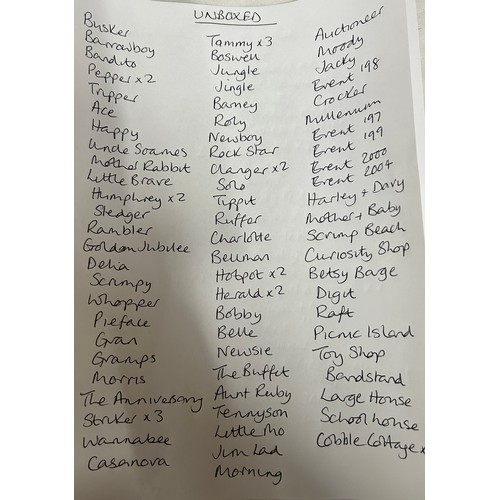 UNBOXED
Busker
Barrowboy
Bandito
Pepper x 2
Tripper
Ace
Happy
Uncle Soames
Mother Rabbit
Little Brave
Humphrey x 2
Sledger
Rambler
Golden Jubilee
Delia
Scrumpy
Whopper
Pieface
Gran
Gramps
Morris
The Anniversary
Striker x 3
Wannabee
Casanova
Tammy x 3
Boswell
Jungle
Jingle
Barney
Roly
Newboy
Rock Star
Clanger x 2
Solo
Tippit
Ruffer
Charlotte
Bellman
Hotpot x 2
Herald x 2
Bobby
Belle
Newsie
The Buffet
Aunt Ruby
Tennyson
Little Mo
Jim Lad
Morning
Auctioneer
Moody
Jacky
Event 198
Crocker
Millenium
Event 197
Event 199
Event 2000
Event 2004
Harley + Davy
Mother + Baby
Scrump Beach
Curiosity Shop
Betsy Barge
Digit
Raft
Picnic Island
Toy Shop
Bandstand
Large House
School house
Cobble Cottage x